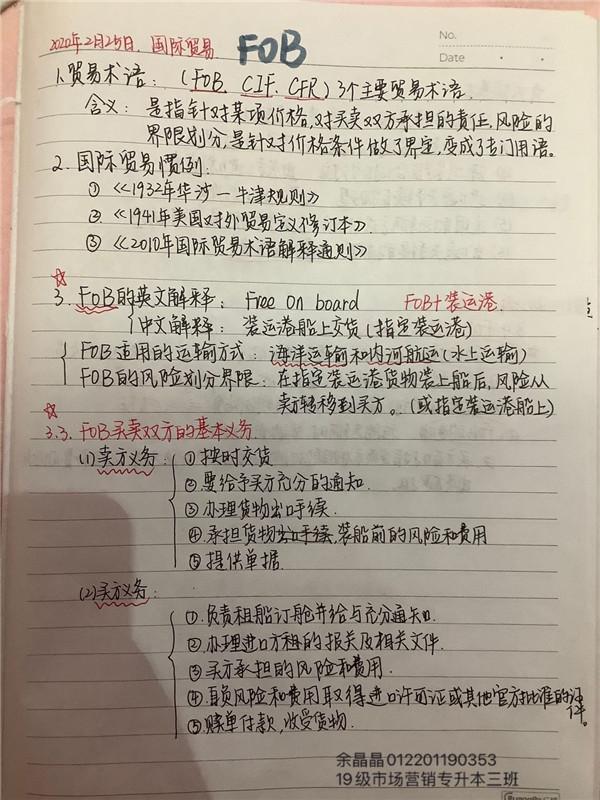 No.
2020年2月25日. 国际贸易 FOB
Date
1.贸易术语：(FOB. CIF. CFR) 3个主要贸易术语.
含义：是指针对某项价格,对买卖双方承担的责任,风险的
界限划分,是针对价格条件做了界定,变成了专门用语。
2.国际贸易惯例：
①《1932年华沙一牛津规则》
②《1941年美国对外贸易定义修订本》
③《2010年国际贸易术语解释通则》
☆
3.FOB的英文解释：Free on board FOB+装运港.
中文解释：装运港船上交货(指定装运港)
FOB适用的运输方式：海洋运输和内河航运(水上运输)
FOB的风险划分界限：在指定装运港货物装上船后,风险从
卖方转移到买方。(或指定装运港船上)
☆
3.3.FOB买卖双方的基本义务
(1)卖方义务：①按时交货
②要给予买方充分的通知.
③办理货物出口手续.
④承担货物出口手续,装船前的风险和费用
⑤提供单据.
(2)买方义务：
①.负责租船订舱并给与充分通知.
②.办理进口方租的报关及相关文件.
③买方承担的风险和费用.
④自负风险和费用取得进口许可证或其他官方批准的证
件。
⑤赎单付款,收受货物.
余晶晶012201190353
19级市场营销专升本三班